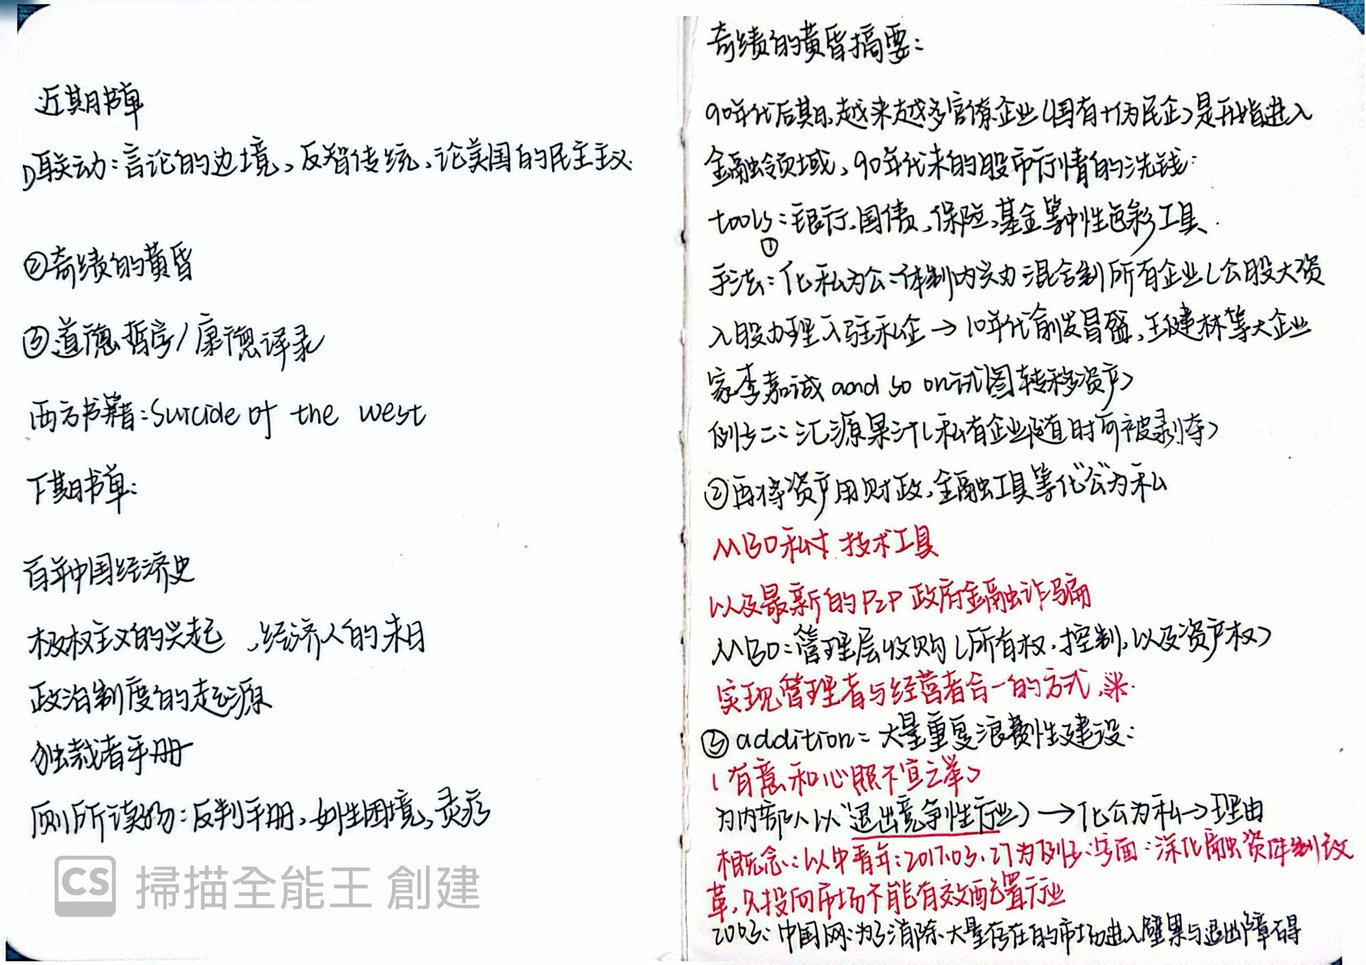 近期书单
①联动：言论的边境、反智传统、论美国的民主主义
②奇绩的黄昏
③道德哲学/康德译录
西方书籍：Suicide of the west
下期书单：
百年中国经济史
极权主义的兴起 、经济人的末日
政治制度的起源
独裁者手册
厕所读物：反判手册，女性困境，灵秀
掃描全能王 創建
奇绩的黄昏摘要：
90年代后期，越来越多官僚企业（国有+伪民企）是开始进入
金融领域，90年代末的股市行情的洗钱：
tools：银行、国债、保险、基金等中性色彩工具.
手法：①化私为公：体制内兴办混合制所有企业（公股大资
入股办理入驻私企→10年代前发昌盛，王健林等大企业
家李嘉诚 aand so on试图转移资产）
例子二：汇源果汁（私有企业随时可被剥夺）
②再将资产用财政、金融工具等化"公"为私
MBO私才 技术工具
以及最新的P2P 政府金融诈骗
MBO：管理层收购（所有权、控制，以及资产权）
实现管理者与经营者合一的方式，米.
③addition：大量重复浪费性建设：
（有意和心照不宣之举）
为内部人以"退出竞争性行业）→化公为私→理由
相概念：以中青年：2017.03.27为例子：字面：深化融资体制改
革，只投向市场不能有效配置行业
2003：中国网：为了消除大量存在的市场进入壁累与退出障碍